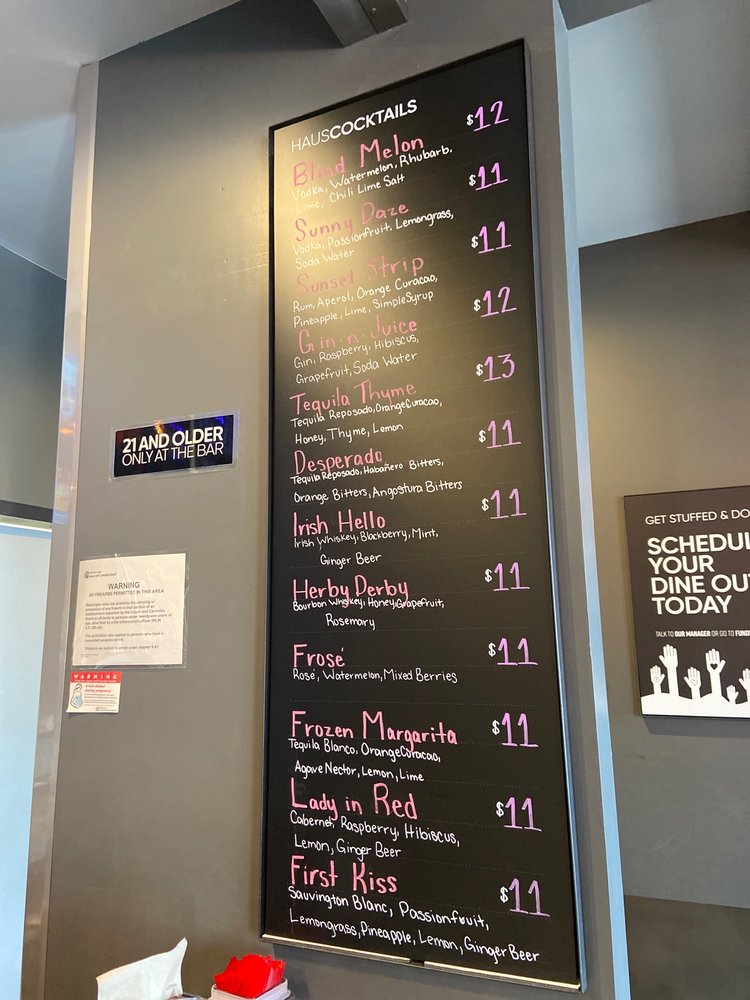 HAUSCOCKTAILS
Blind Melon $12
Vodka, Watermelon, Rhubarb,
Lime, Chili Lime Salt
Sunny Daze $11
Vodka, Passionfruit, Lemongrass,
Soda Water
Sunset Strip $11
Rum, Aperol, Orange Curacao,
Pineapple, Lime, Simple Syrup
Gin-n-Juice $12
Gin, Raspberry, Hibiscus,
Grapefruit, Soda Water
Tequila Thyme $13
Tequila Reposado, Orange Curacao,
Honey, Thyme, Lemon
Desperado $11
Tequila Reposado, Habañero Bitters,
Orange Bitters, Angostura Bitters
Irish Hello $11
Irish Whiskey, Blackberry, Mint,
Ginger Beer
Herby Derby $11
Bourbon Whiskey, Honey, Grapefruit,
Rosemary
Frosé $11
Rosé, Watermelon, Mixed Berries
Frozen Margarita $11
Tequila Blanco, Orange Curacao,
Agave Nector, Lemon, Lime
Lady in Red $11
Cabernet, Raspberry, Hibiscus,
Lemon, Ginger Beer
First Kiss $11
Sauvington Blanc, Passionfruit,
Lemongrass, Pineapple, Lemon, Ginger Beer
21 AND OLDER
ONLY AT THE BAR
WARNING
NO FIREARMS PERMITTED IN THIS AREA
WARNING
GET STUFFED & DO
SCHEDUL
YOUR
DINE OUT
TODAY
TALK TO OUR MANAGER OR GO TO FUND